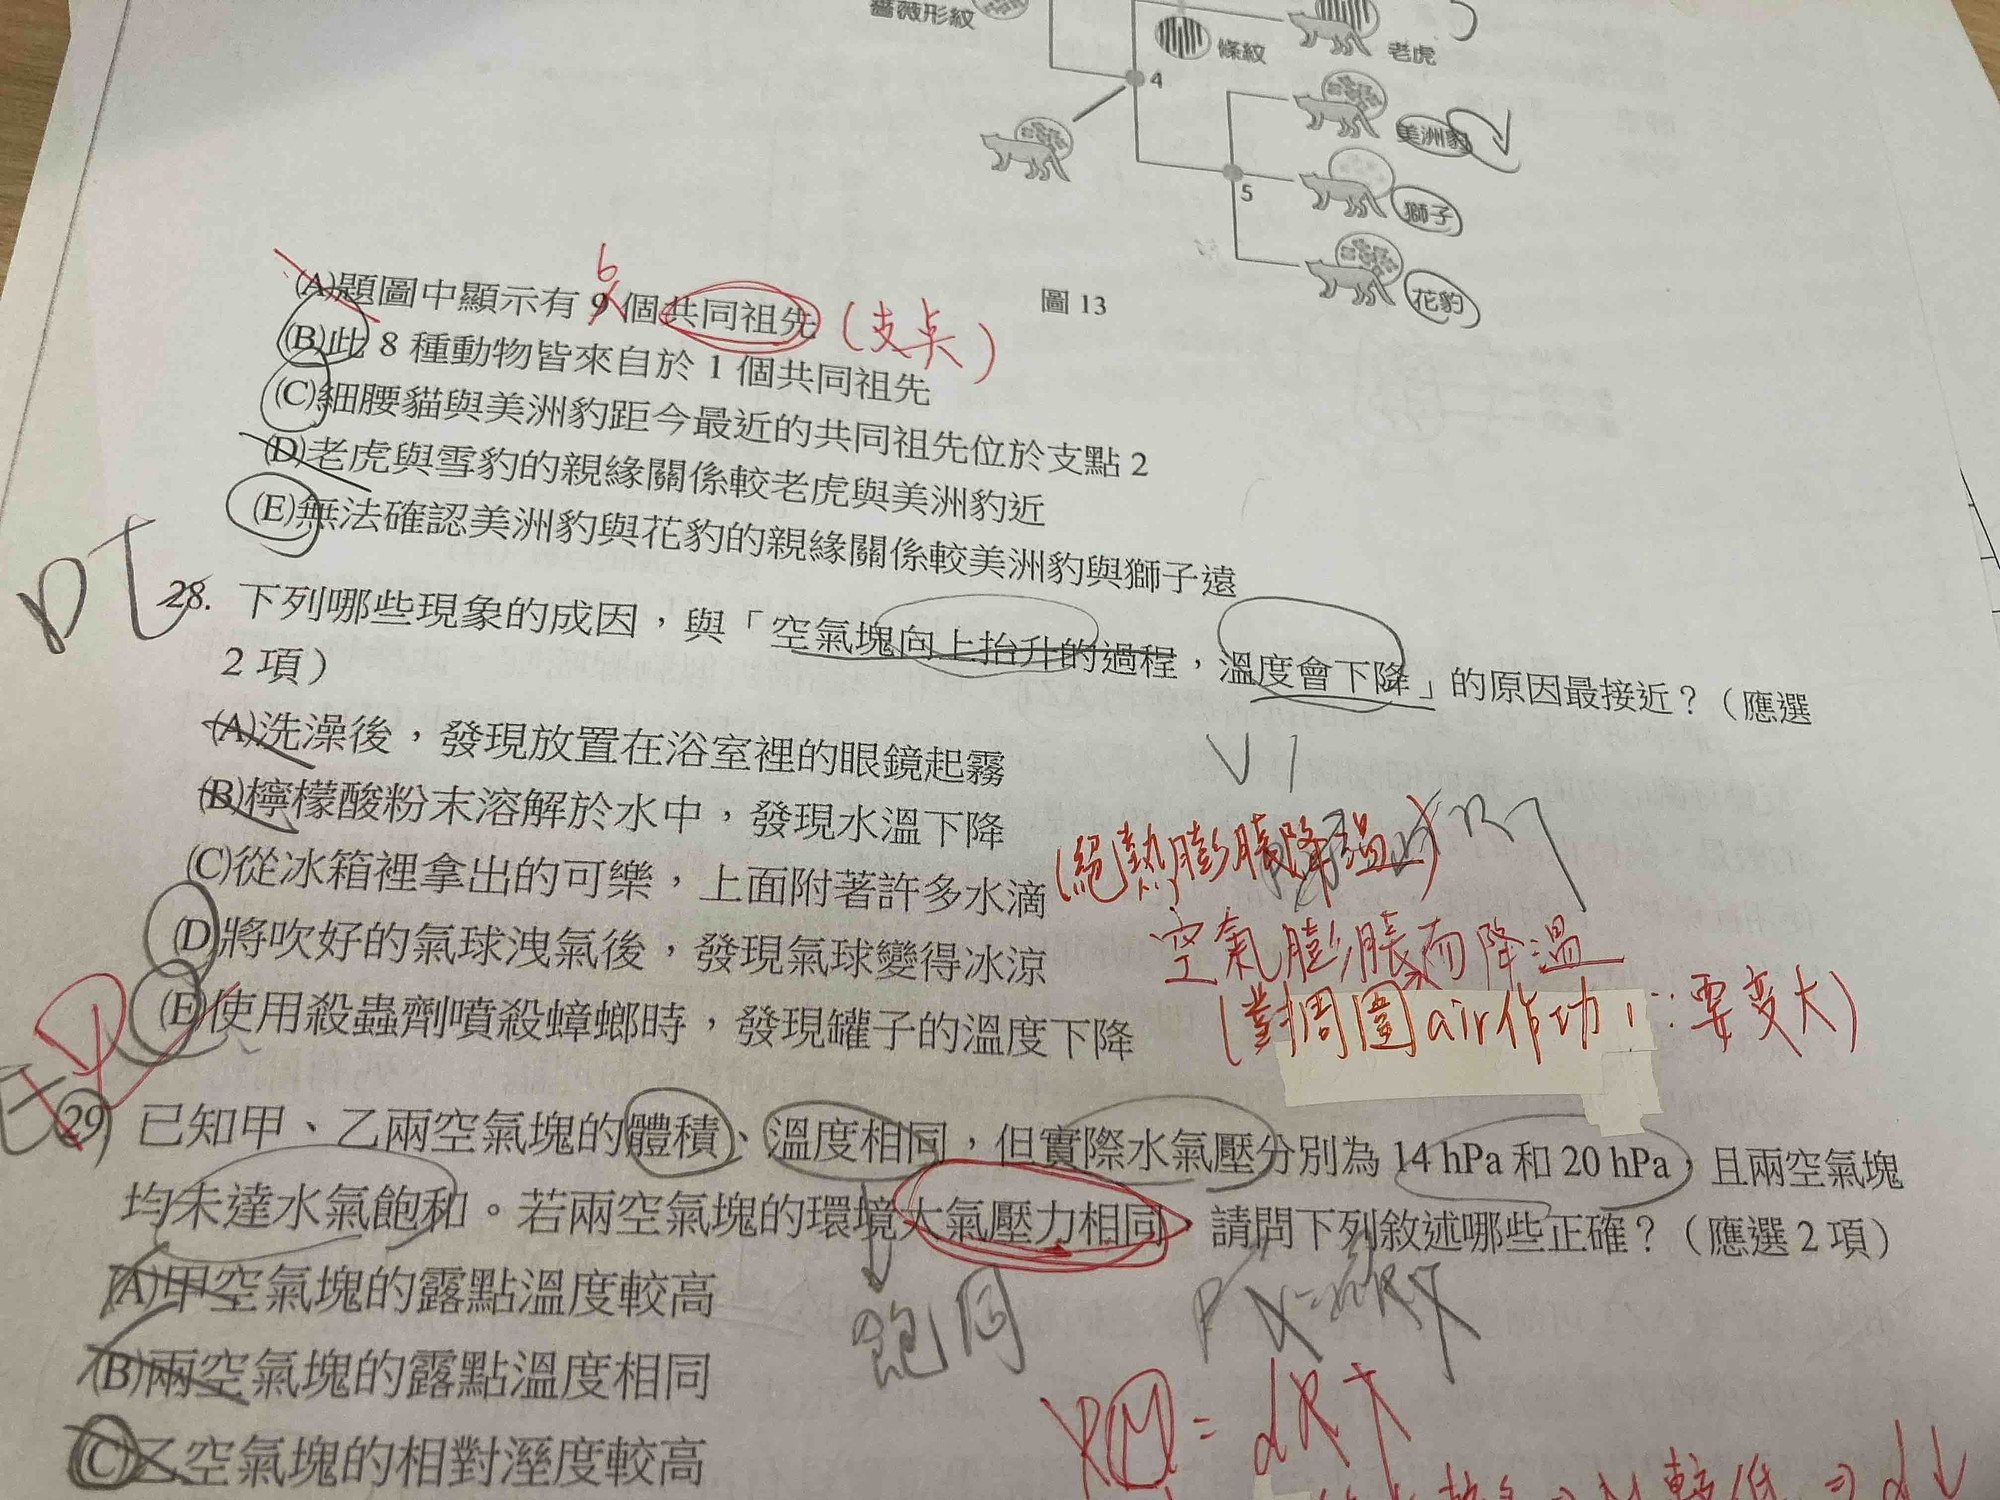 薔薇形紋
條紋
老虎
4
美洲豹
5
獅子
花豹
圖 13
(A)題圖中顯示有 9 個共同祖先
6
(支点)
(B)此 8 種動物皆來自於 1 個共同祖先
(C)細腰貓與美洲豹距今最近的共同祖先位於支點 2
(D)老虎與雪豹的親緣關係較老虎與美洲豹近
(E)無法確認美洲豹與花豹的親緣關係較美洲豹與獅子遠
28. 下列哪些現象的成因，與「空氣塊向上抬升的過程，溫度會下降」的原因最接近？（應選
2 項）
(A)洗澡後，發現放置在浴室裡的眼鏡起霧
(B)檸檬酸粉末溶解於水中，發現水溫下降
(C)從冰箱裡拿出的可樂，上面附著許多水滴
(絕熱膨脹降溫)
(D)將吹好的氣球洩氣後，發現氣球變得冰涼
空氣膨脹而降溫
(E)使用殺蟲劑噴殺蟑螂時，發現罐子的溫度下降
(對周圍air作功，∵要變大)
29. 已知甲、乙兩空氣塊的體積、溫度相同，但實際水氣壓分別為 14 hPa 和 20 hPa，且兩空氣塊
均未達水氣飽和。若兩空氣塊的環境大氣壓力相同，請問下列敘述哪些正確？（應選 2 項）
(A)甲空氣塊的露點溫度較高
飽同
(B)兩空氣塊的露點溫度相同
PM = dRT
(C)乙空氣塊的相對溼度較高